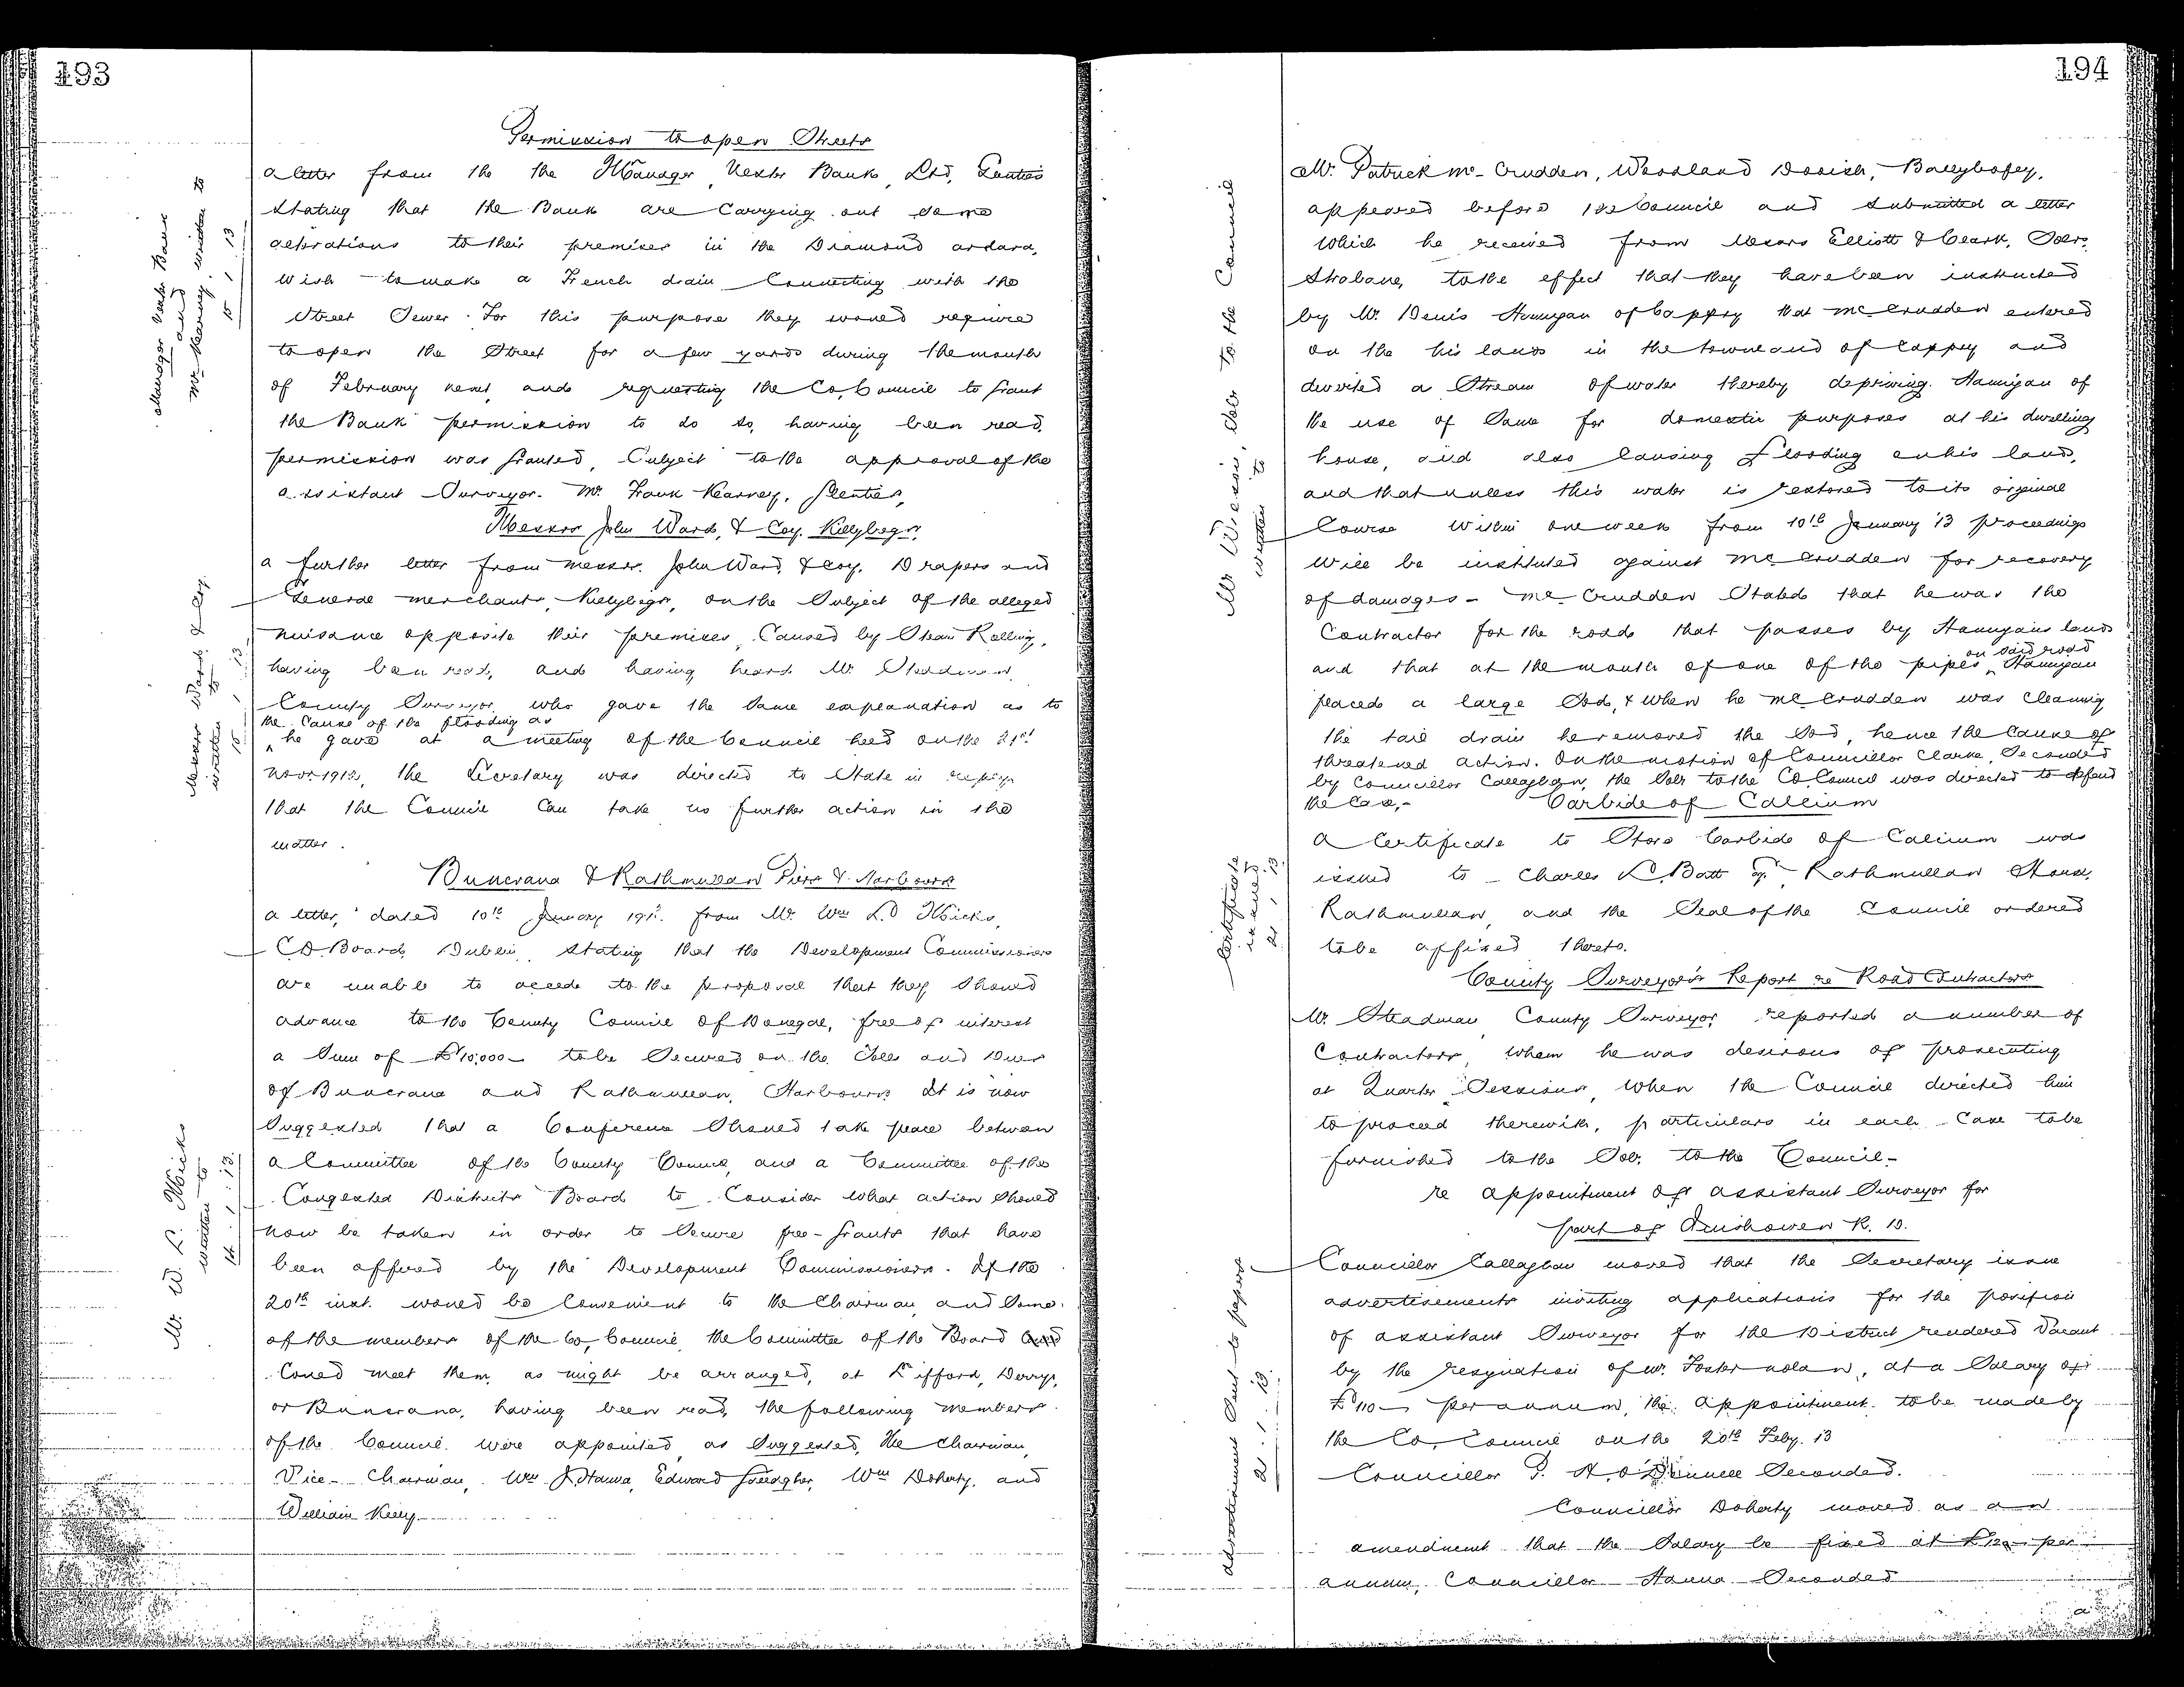 193
Permission to open Streets
a letter from the the Manager Ulster Bank, Ltd,
stating that the Bank are Carrying out some
alterations to their premises in the Diamond ardara,
wish to make a French drain Connecting with the
Street Sewer. For this purpose they would require
to open the Street for a few yards during the month
of February next, and requesting the Co. Council to Grant
the Bank permission to do so, having been read,
permission was Granted, Subject to the approval of the
assistant Surveyor. Mr. Frank Kearney, Glenties,
Manager Ulster Bank
and
Mr Kearney. written to
15/1/13
Messrs John Ward, & Coy. Killybegs,
a further letter from messrs. John Ward, & Coy. Drapers and
General merchants, Killybegs, on the Subject of the alleged
nuisance opposite their premises, Caused by Steam Rolling,
having been read, and having heard Mr. Steadman,
County Surveyor, who gave the Same explanation as to
the Cause of the flooding as
he gave at a meeting of the Council held on the 21st
Novr 1912, the Secretary was directed to State in reply
that the Council Can take no further action in the
matter.
Messrs Ward & Coy.
written to
Buncrana & Rathmullan Piers & Harbours
a letter, dated 10th January 191 from Mr. Wm L.D Micks,
C.D. Board, Dublin, stating that the Development Commissioners
are unable to accede to the proposal that they Should
advance to the County Council of Donegal, free of interest
a Sum of £10,000 - to be Secured on the Tolls and Dues
of Buncrana and Rathmullan, Harbours. It is now
Suggested that a Conference Should take place between
a Committee of the County Council, and a Committee of the
Congested Districts Board to Consider what action Should
now be taken in order to Secure free-Grants that have
been offered by the Development Commissioners. If the
20th inst. would be Convenient to the Chairman, and Some
of the members of the Co. Council, the Committee of the Board
Could meet them, as might be arranged, at Lifford, Derry,
or Buncrana, having been read, the following members
of the Council were appointed as Suggested, The Chairman,
Vice-Chairman, Wm J. Hanna, Edward Gallagher, Wm Doherty, and
William Kelly
Mr. W. L. Micks
written to
14.1.13.
194
Mr. Patrick Mc-Crudden, Woodland Dooish, Ballybofey,
appeared before the Council and submitted a letter
which he received from Messrs Elliott & Clark, Solrs.
Strabane, to the effect that they have been instructed
by Mr. Denis Hannigan of Cappry that McCrudden entered
on the his lands in the townland of Cappry and
diverted a Stream of water thereby depriving Hannigan of
the use of Same for domestic purposes at his dwelling
house, and also Causing flooding on his land,
and that unless this water is restored to its original
Course within one week from 10th January '13 proceedings
will be instituted against McCrudden for recovery
of damages - McCrudden Stated that he was the
Contractor for the road that passes by Hannigans lands
on said road
and that at the mouth of one of the pipes Hannigan
placed a large Sod, & when he McCrudden was Cleaning
the said drain he removed the Sod, hence the Cause of
threatened action. On the motion of Councillor Clarke, Seconded
by Councillor Callaghan, the Solr to the Co. Council was directed to defend
the Case,-
Mr Wilson, Solr to the Council
written to
Carbide of Calcium
A Certificate to Store Carbide of Calcium was
issued to Charles L. Batt Esqr. Rathmullan House,
Rathmullan, and the Seal of the Council ordered
to be affixed thereto.
Certificate
issued
21.1.13.
County Surveyor's Report re Road Contractors
Mr. Steadman County Surveyor, reported a number of
Contractors, whom he was desirous of prosecuting
at Quarter Sessions, when the Council directed him
to proceed therewith, particulars in each Case to be
furnished to the Solr. to the Council-
re appointment of assistant Surveyor for
part of Inishowen R. D.
Councillor Callaghan moved that the Secretary issue
advertisements inviting applications for the position
of assistant Surveyor for the District rendered Vacant
by the resignation of Mr. Foster Nolan, at a Salary of
£110 - per annum, the appointment to be made by
the Co. Council on the 20th Feby. 13
Councillor P. H. O'Donnell Seconded.
Councillor Doherty moved as an
amendment that the Salary be fixed at £120 per
annum, Councillor Hanna Seconded
advertisement Sent to papers
21.1.13.
a